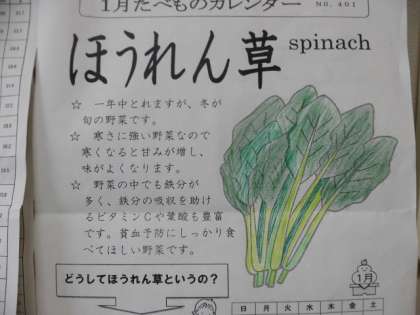 1月たべものカレンダー NO. 401
ほうれん草 spinach
☆ 一年中とれますが、冬が
旬の野菜です。
☆ 寒さに強い野菜なので
寒くなると甘みが増し、
味がよくなります。
☆ 野菜の中でも鉄分が
多く、鉄分の吸収を助け
るビタミンCや葉酸も豊富
です。貧血予防にしっかり食
べてほしい野菜です。
どうしてほうれん草というの?
1月
日 月 火 水 木 金 土